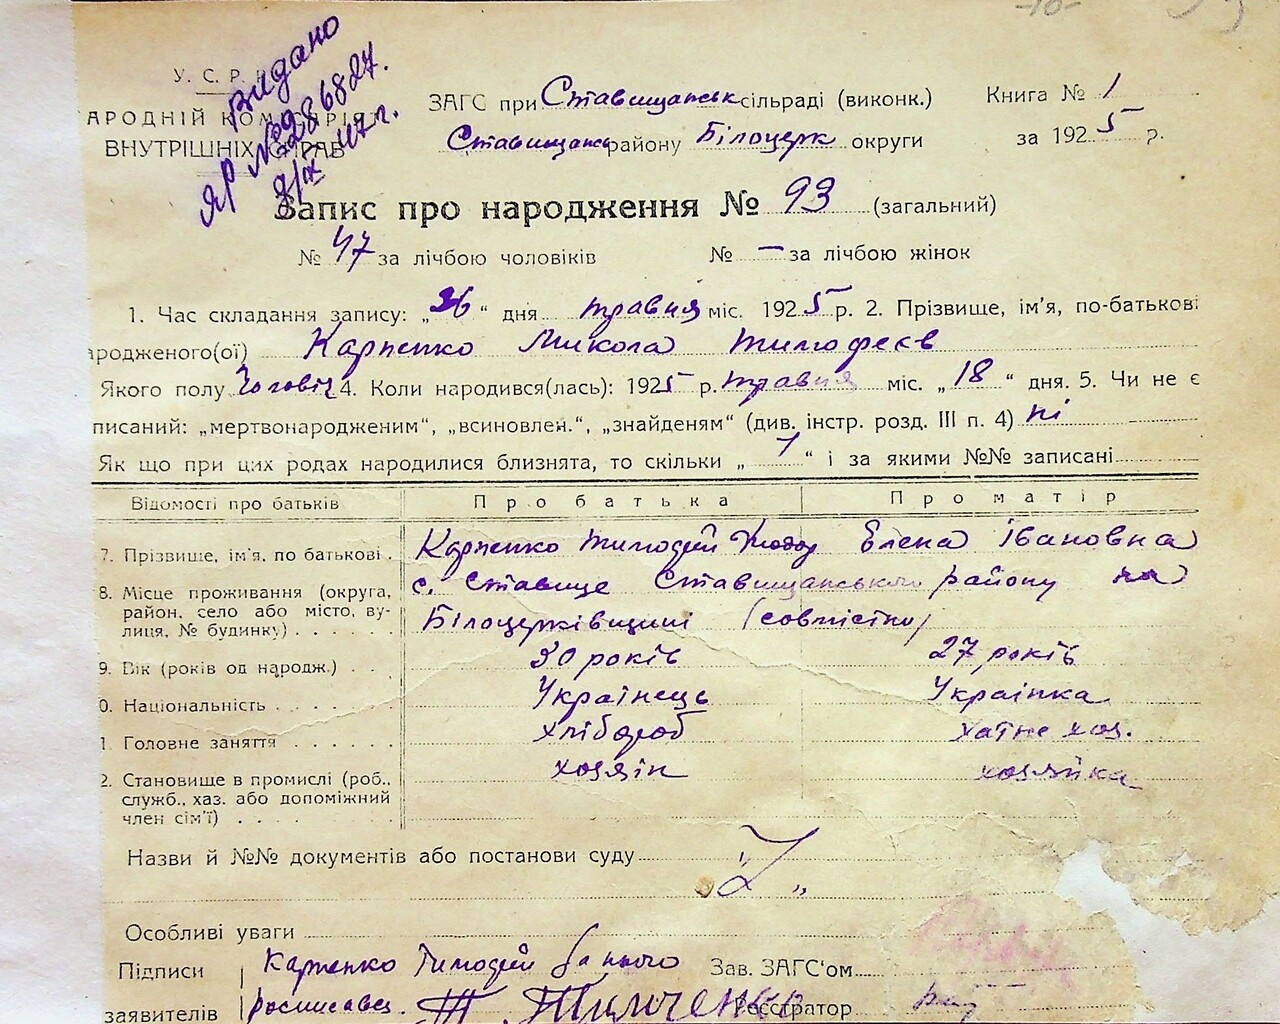 -10-
Видано
ЯР № 286827.
8/IX 47 г.
У. С. Р. Р.
АРОДНІЙ КОМІСАРІЯ
ВНУТРІШНІХ СПРАВ
ЗАГС при Ставищанськ сільраді (виконк.) Книга № 1
Ставищанськ району Білоцерк округи за 1925 р.
Запис про народження № 93 (загальний)
№ 47 за лічбою чоловіків № — за лічбою жінок
1. Час складання запису: „26“ дня травня міс. 1925 р. 2. Прізвище, ім'я, по-батькові
ародженого(ої) Карпенко Микола Тимофеєв
Якого полу Чоловіч 4. Коли народився(лась): 1925 р. травня міс. „18“ дня. 5. Чи не є
писаний: „мертвонародженим“, „всиновлен.“, „знайденям“ (див. інстр. розд. III п. 4) ні
Як що при цих родах народилися близнята, то скільки „ 1 “ і за якими №№ записані
Відомості про батьків Про батька Про матір
7. Прізвище, ім'я, по батькові . Карпенко Тимофей Елена Івановна
8. Місце проживання (округа, район, село або місто, вулиця, № будинку) . . . . . . с. Ставище Ставищанського району на
Білоцерківщині (совмістно)
9. Вік (років од народж.) . . 30 років 27 років
0. Національність . . . . . Українець Українка
1. Головне заняття . . . . . . хлібороб хатнє хоз.
2. Становище в промислі (роб., служб., хаз. або допоміжний член сім'ї) . . . . хозяін хозяйка
Назви й №№ документів або постанови суду
Особливі уваги
Підписи Карпенко Тимофей за нього Зав. ЗАГС'ом
заявителів росписавсь Т. Тимченко Реєстратор